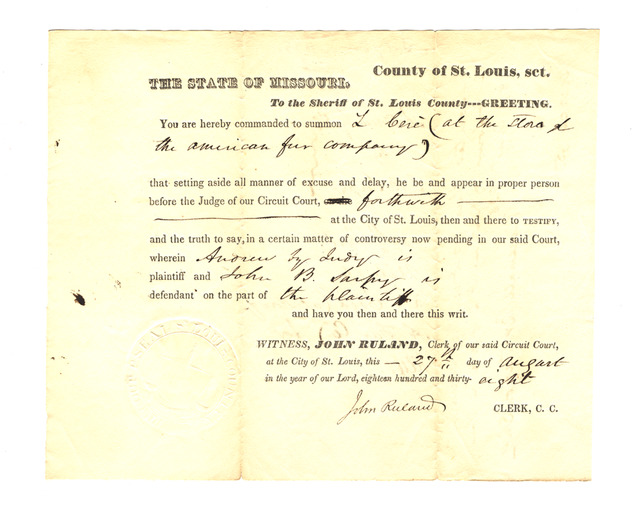 THE STATE OF MISSOURI. County of St. Louis, sct.
To the Sheriff of St. Louis County---GREETING.
You are hereby commanded to summon L Ceré (at the store of
the american fur company)
that setting aside all manner of excuse and delay, he be and appear in proper person
before the Judge of our Circuit Court, forthwith
at the City of St. Louis, then and there to TESTIFY,
and the truth to say, in a certain matter of controversy now pending in our said Court,
wherein Andrew by Judy is
plaintiff and John B. Sarpy is
defendant on the part of the plaintiff
and have you then and there this writ.
WITNESS, JOHN RULAND, Clerk of our said Circuit Court,
at the City of St. Louis, this 27th day of august
in the year of our Lord, eighteen hundred and thirty-eight
John Ruland CLERK, C. C.